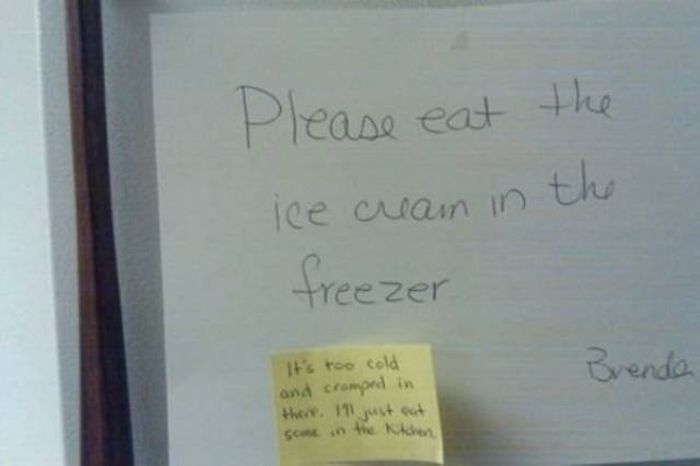 Please eat the
ice cream in the
freezer
Brenda
It's too cold
and cramped in
there. I'll just eat
some in the kitchen